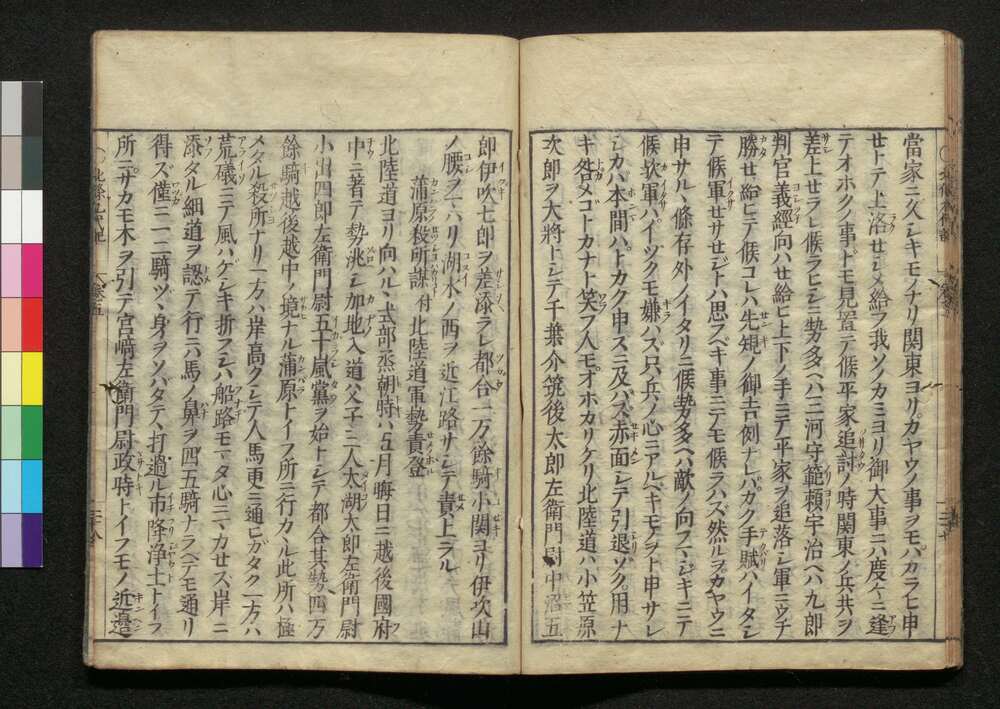 當家ニ久シキモノナリ関東ヨリカヤウノ事ヲモバカラヒ申
せトテ上洛せシメ給フ我ソノカミヨリ御大事ニ六度々ニ逢
テオホクノ事ドモ見置テ候平家追討ノ時関東ノ兵共ヲ
差上せラレ候ラヒシニ勢多ヘハ三河守範頼宇治ヘハ九郎
判官義經向ハせ給ヒ上下ノ手ニテ平家ヲ追落シ軍ニウチ
勝せ給ヒテ候コレハ先規ノ御吉例ナレバカク手賦ハイタシ
テ候軍せサせジトハ思スベキ事ニテモ候ラハズ然ルヲカヤウニ
申サルヽ條存外ノイタリニ候勢多ヘハ敵ノ向フマジキニテ
候歟軍ハイヅクモ嫌ハズ只兵ノ心ニアルベキモノヲト申サレ
シカバ本間ハトカク申スニ及バズ赤面シテ引退ゾク用ナ
キ咎メゴトカナト笑フ人モオホカリケリ北陸道ハ小笠原
次郎ヲ大將トシテ千葉介筑後太郎左衛門尉中沼五
郎伊吹七郎ヲ差添ラレ都合一万餘騎小関ヨリ伊吹山
ノ腰ヲマハリ湖水ノ西ヲ近江路サシテ責上ラル
蒲原殺所謀 付 北陸道軍勢責登
北陸道ヨリ向ハルヽ式部丞朝時ハ五月晦日ニ越後國府
中ニ著テ勢汰シ加地入道父子三人太湖太郎左衛門尉
小出四郎左衛門尉五十嵐黨ヲ始トシテ都合其勢四万
餘騎越後越中ノ境ナル蒲原トイフ所ニ行カヽル此所ハ極
メタル殺所ナリ一方ハ岸高クシテ人馬更ニ通ヒガタク一方ハ
荒礒ニテ風ハゲシキ折フシハ船路モマタ心ニマカせス岸ニ
添タル細道ヲ認テ行ニ六馬ノ鼻ヲ四五騎ナラベテモ通リ
得ズ僅ニ一二騎ヅヽ身ヲソバタテヽ打過ル市降浄土トイフ
所ニサカモ木ヲ引テ宮﨑左衛門尉政時トイフモノ近邉